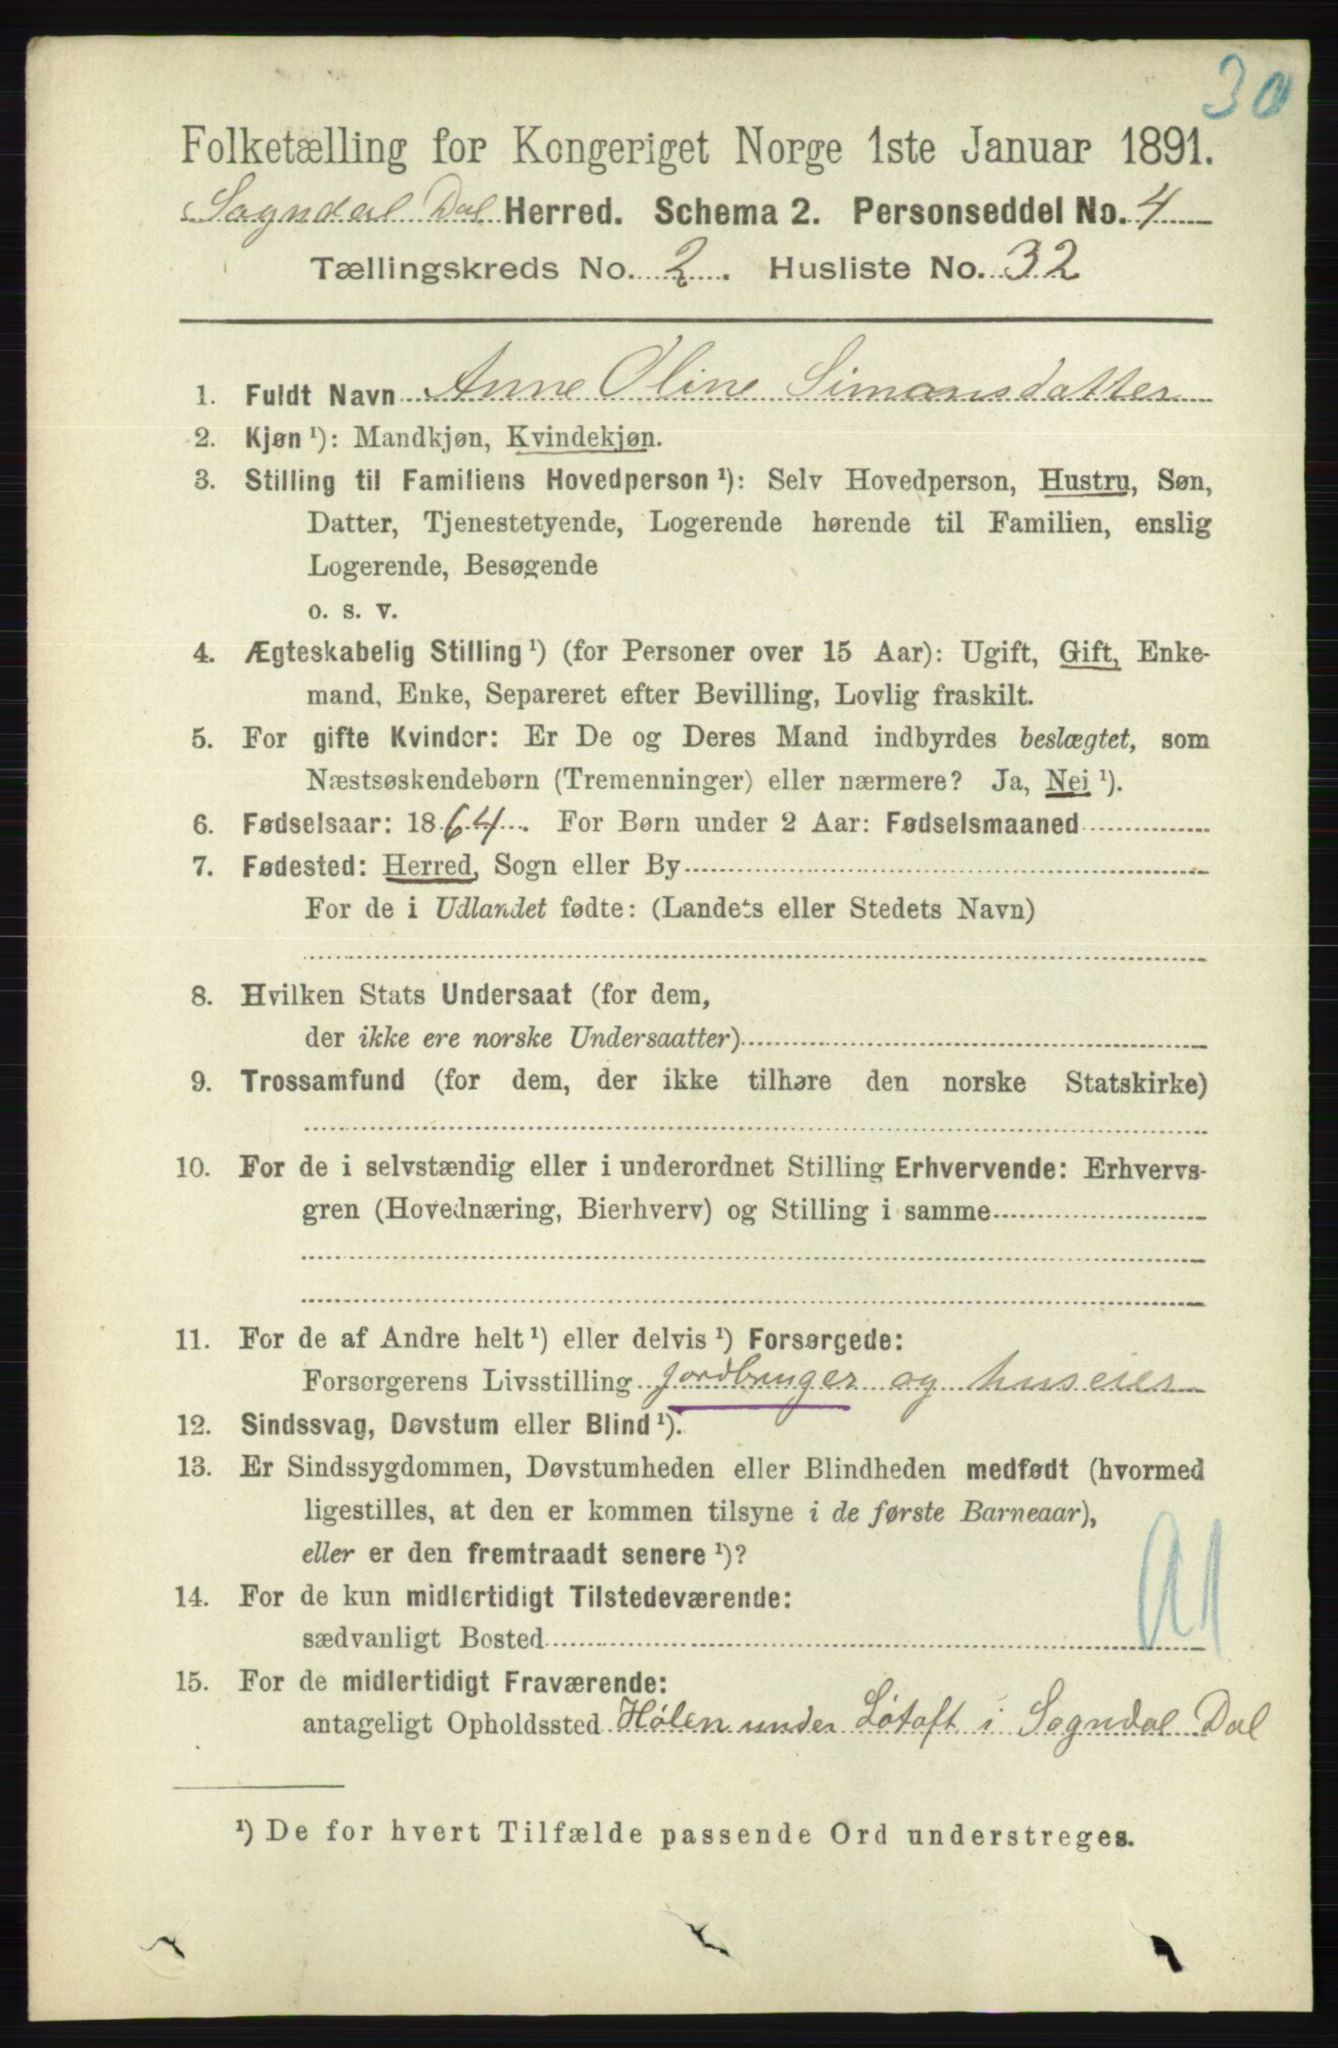 30
Folketælling for Kongeriget Norge 1ste Januar 1891.
Sogndal Dal Herred. Schema 2. Personseddel No. 4
Tællingskreds No. 2. Husliste No. 32
1. Fuldt Navn Anne Oline Simonsdatter
2. Kjøn ¹): Mandkjøn, Kvindekjøn.
3. Stilling til Familiens Hovedperson ¹): Selv Hovedperson, Hustru, Søn,
Datter, Tjenestetyende, Logerende hørende til Familien, enslig
Logerende, Besøgende
o. s. v.
4. Ægteskabelig Stilling ¹) (for Personer over 15 Aar): Ugift, Gift, Enke-
mand, Enke, Separeret efter Bevilling, Lovlig fraskilt.
5. For gifte Kvinder: Er De og Deres Mand indbyrdes beslægtet, som
Næstsøskendebørn (Tremenninger) eller nærmere? Ja, Nei ¹).
6. Fødselsaar: 1864. For Børn under 2 Aar: Fødselsmaaned
7. Fødested: Herred, Sogn eller By
For de i Udlandet fødte: (Landets eller Stedets Navn)
8. Hvilken Stats Undersaat (for dem,
der ikke ere norske Undersaatter)
9. Trossamfund (for dem, der ikke tilhøre den norske Statskirke)
10. For de i selvstændig eller i underordnet Stilling Erhvervende: Erhvervs-
gren (Hovednæring, Bierhverv) og Stilling i samme
11. For de af Andre helt ¹) eller delvis ¹) Forsørgede:
Forsørgerens Livsstilling jordbruger og huseier
12. Sindssvag, Døvstum eller Blind ¹).
13. Er Sindssygdommen, Døvstumheden eller Blindheden medfødt (hvormed
ligestilles, at den er kommen tilsyne i de første Barneaar),
eller er den fremtraadt senere ¹)?
14. For de kun midlertidigt Tilstedeværende:
sædvanligt Bosted
15. For de midlertidigt Fraværende:
antageligt Opholdssted Hølen under Løtoft i Sogndal Dal
¹) De for hvert Tilfælde passende Ord understreges.